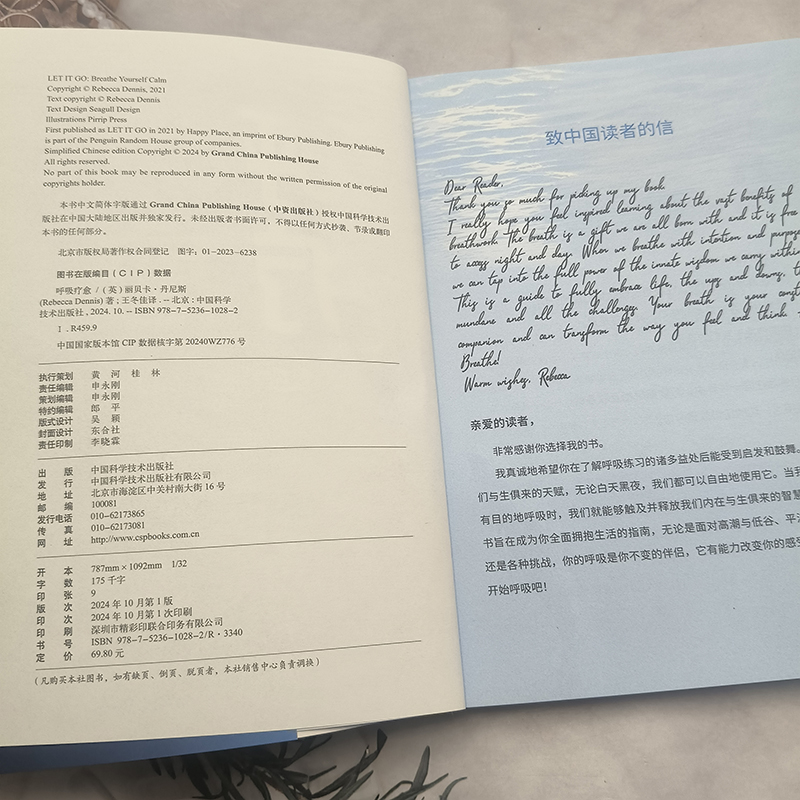 LET IT GO: Breathe Yourself Calm
Copyright © Rebecca Dennis, 2021
Text copyright © Rebecca Dennis
Text Design Seagull Design
Illustrations Pirrip Press
First published as LET IT GO in 2021 by Happy Place, an imprint of Ebury Publishing. Ebury Publishing
is part of the Penguin Random House group of companies.
Simplified Chinese edition Copyright © 2024 by Grand China Publishing House
All rights reserved.
No part of this book may be reproduced in any form without the written permission of the original
copyrights holder.
本书中文简体字版通过 Grand China Publishing House（中资出版社）授权中国科学技术出
版社在中国大陆地区出版并独家发行。未经出版者书面许可，不得以任何方式抄袭、节录或翻印
本书的任何部分。
北京市版权局著作权合同登记 图字：01-2023-6238
图书在版编目（CIP）数据
呼吸疗愈 /（英）丽贝卡·丹尼斯
(Rebecca Dennis) 著；王冬佳译. -- 北京：中国科学
技术出版社, 2024. 10. -- ISBN 978-7-5236-1028-2
Ⅰ. R459.9
中国国家版本馆 CIP 数据核字第 20240WZ776 号
执行策划 黄 河 桂 林
责任编辑 申永刚
策划编辑 申永刚
特约编辑 郎 平
版式设计 吴 颖
封面设计 东合社
责任印制 李晓霖
出 版 中国科学技术出版社
发 行 中国科学技术出版社有限公司
地 址 北京市海淀区中关村南大街 16 号
邮 编 100081
发行电话 010-62173865
传 真 010-62173081
网 址 http://www.cspbooks.com.cn
开 本 787mm×1092mm 1/32
字 数 175 千字
印 张 9
版 次 2024 年 10 月第 1 版
印 次 2024 年 10 月第 1 次印刷
印 刷 深圳市精彩印联合印务有限公司
书 号 ISBN 978-7-5236-1028-2/R·3340
定 价 69.80 元
（凡购买本社图书，如有缺页、倒页、脱页者，本社销售中心负责调换）
致中国读者的信
Dear Reader,
Thank you so much for picking up my book
I really hope you feel inspired learning about the vast benefits of
breathwork. The breath is a gift we are all born with and it is free
to access night and day. When we breathe with intention and purpose
we can tap into the full power of the innate wisdom we carry within
This is a guide to fully embrace life, the ups and downs, t
mundane and all the challenges. Your breath is your const
companion and can transform the way you feel and think
Breathe!
Warm wishes, Rebecca
亲爱的读者，
非常感谢你选择我的书。
我真诚地希望你在了解呼吸练习的诸多益处后能受到启发和鼓舞。
们与生俱来的天赋，无论白天黑夜，我们都可以自由地使用它。当我
有目的地呼吸时，我们就能够触及并释放我们内在与生俱来的智慧
书旨在成为你全面拥抱生活的指南，无论是面对高潮与低谷、平
还是各种挑战，你的呼吸是你不变的伴侣，它有能力改变你的感
开始呼吸吧！